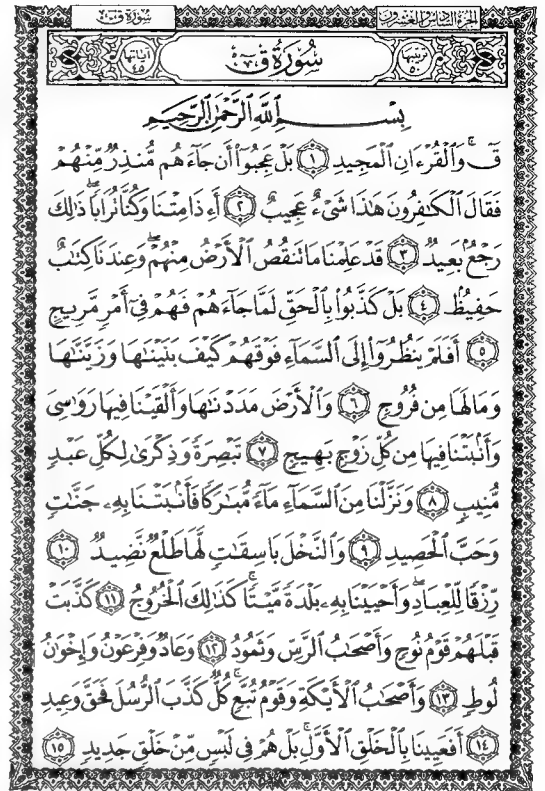 سُورَةُ ق ٥٠ الجزء السادس والعشرون
ترتيبها ٥٠ سُورَةُ ق آياتها ٤٥
بِسْمِ ٱللَّهِ ٱلرَّحْمَٰنِ ٱلرَّحِيمِ
قٓ ۚ وَٱلْقُرْءَانِ ٱلْمَجِيدِ ۝١ بَلْ عَجِبُوٓا۟ أَن جَآءَهُم مُّنذِرٌ مِّنْهُمْ
فَقَالَ ٱلْكَٰفِرُونَ هَٰذَا شَىْءٌ عَجِيبٌ ۝٢ أَءِذَا مِتْنَا وَكُنَّا تُرَابًا ۖ ذَٰلِكَ
رَجْعٌۢ بَعِيدٌ ۝٣ قَدْ عَلِمْنَا مَا تَنقُصُ ٱلْأَرْضُ مِنْهُمْ ۖ وَعِندَنَا كِتَٰبٌ
حَفِيظٌۢ ۝٤ بَلْ كَذَّبُوا۟ بِٱلْحَقِّ لَمَّا جَآءَهُمْ فَهُمْ فِىٓ أَمْرٍ مَّرِيجٍ
۝٥ أَفَلَمْ يَنظُرُوٓا۟ إِلَى ٱلسَّمَآءِ فَوْقَهُمْ كَيْفَ بَنَيْنَٰهَا وَزَيَّنَّٰهَا
وَمَا لَهَا مِن فُرُوجٍ ۝٦ وَٱلْأَرْضَ مَدَدْنَٰهَا وَأَلْقَيْنَا فِيهَا رَوَٰسِىَ
وَأَنۢبَتْنَا فِيهَا مِن كُلِّ زَوْجٍۭ بَهِيجٍ ۝٧ تَبْصِرَةً وَذِكْرَىٰ لِكُلِّ عَبْدٍ
مُّنِيبٍ ۝٨ وَنَزَّلْنَا مِنَ ٱلسَّمَآءِ مَآءً مُّبَٰرَكًا فَأَنۢبَتْنَا بِهِۦ جَنَّٰتٍ
وَحَبَّ ٱلْحَصِيدِ ۝٩ وَٱلنَّخْلَ بَاسِقَٰتٍ لَّهَا طَلْعٌ نَّضِيدٌ ۝١٠
رِّزْقًا لِّلْعِبَادِ ۖ وَأَحْيَيْنَا بِهِۦ بَلْدَةً مَّيْتًا ۚ كَذَٰلِكَ ٱلْخُرُوجُ ۝١١ كَذَّبَتْ
قَبْلَهُمْ قَوْمُ نُوحٍ وَأَصْحَٰبُ ٱلرَّسِّ وَثَمُودُ ۝١٢ وَعَادٌ وَفِرْعَوْنُ وَإِخْوَٰنُ
لُوطٍ ۝١٣ وَأَصْحَٰبُ ٱلْأَيْكَةِ وَقَوْمُ تُبَّعٍ ۚ كُلٌّ كَذَّبَ ٱلرُّسُلَ فَحَقَّ وَعِيدِ
۝١٤ أَفَعَيِينَا بِٱلْخَلْقِ ٱلْأَوَّلِ ۚ بَلْ هُمْ فِى لَبْسٍ مِّنْ خَلْقٍ جَدِيدٍ ۝١٥